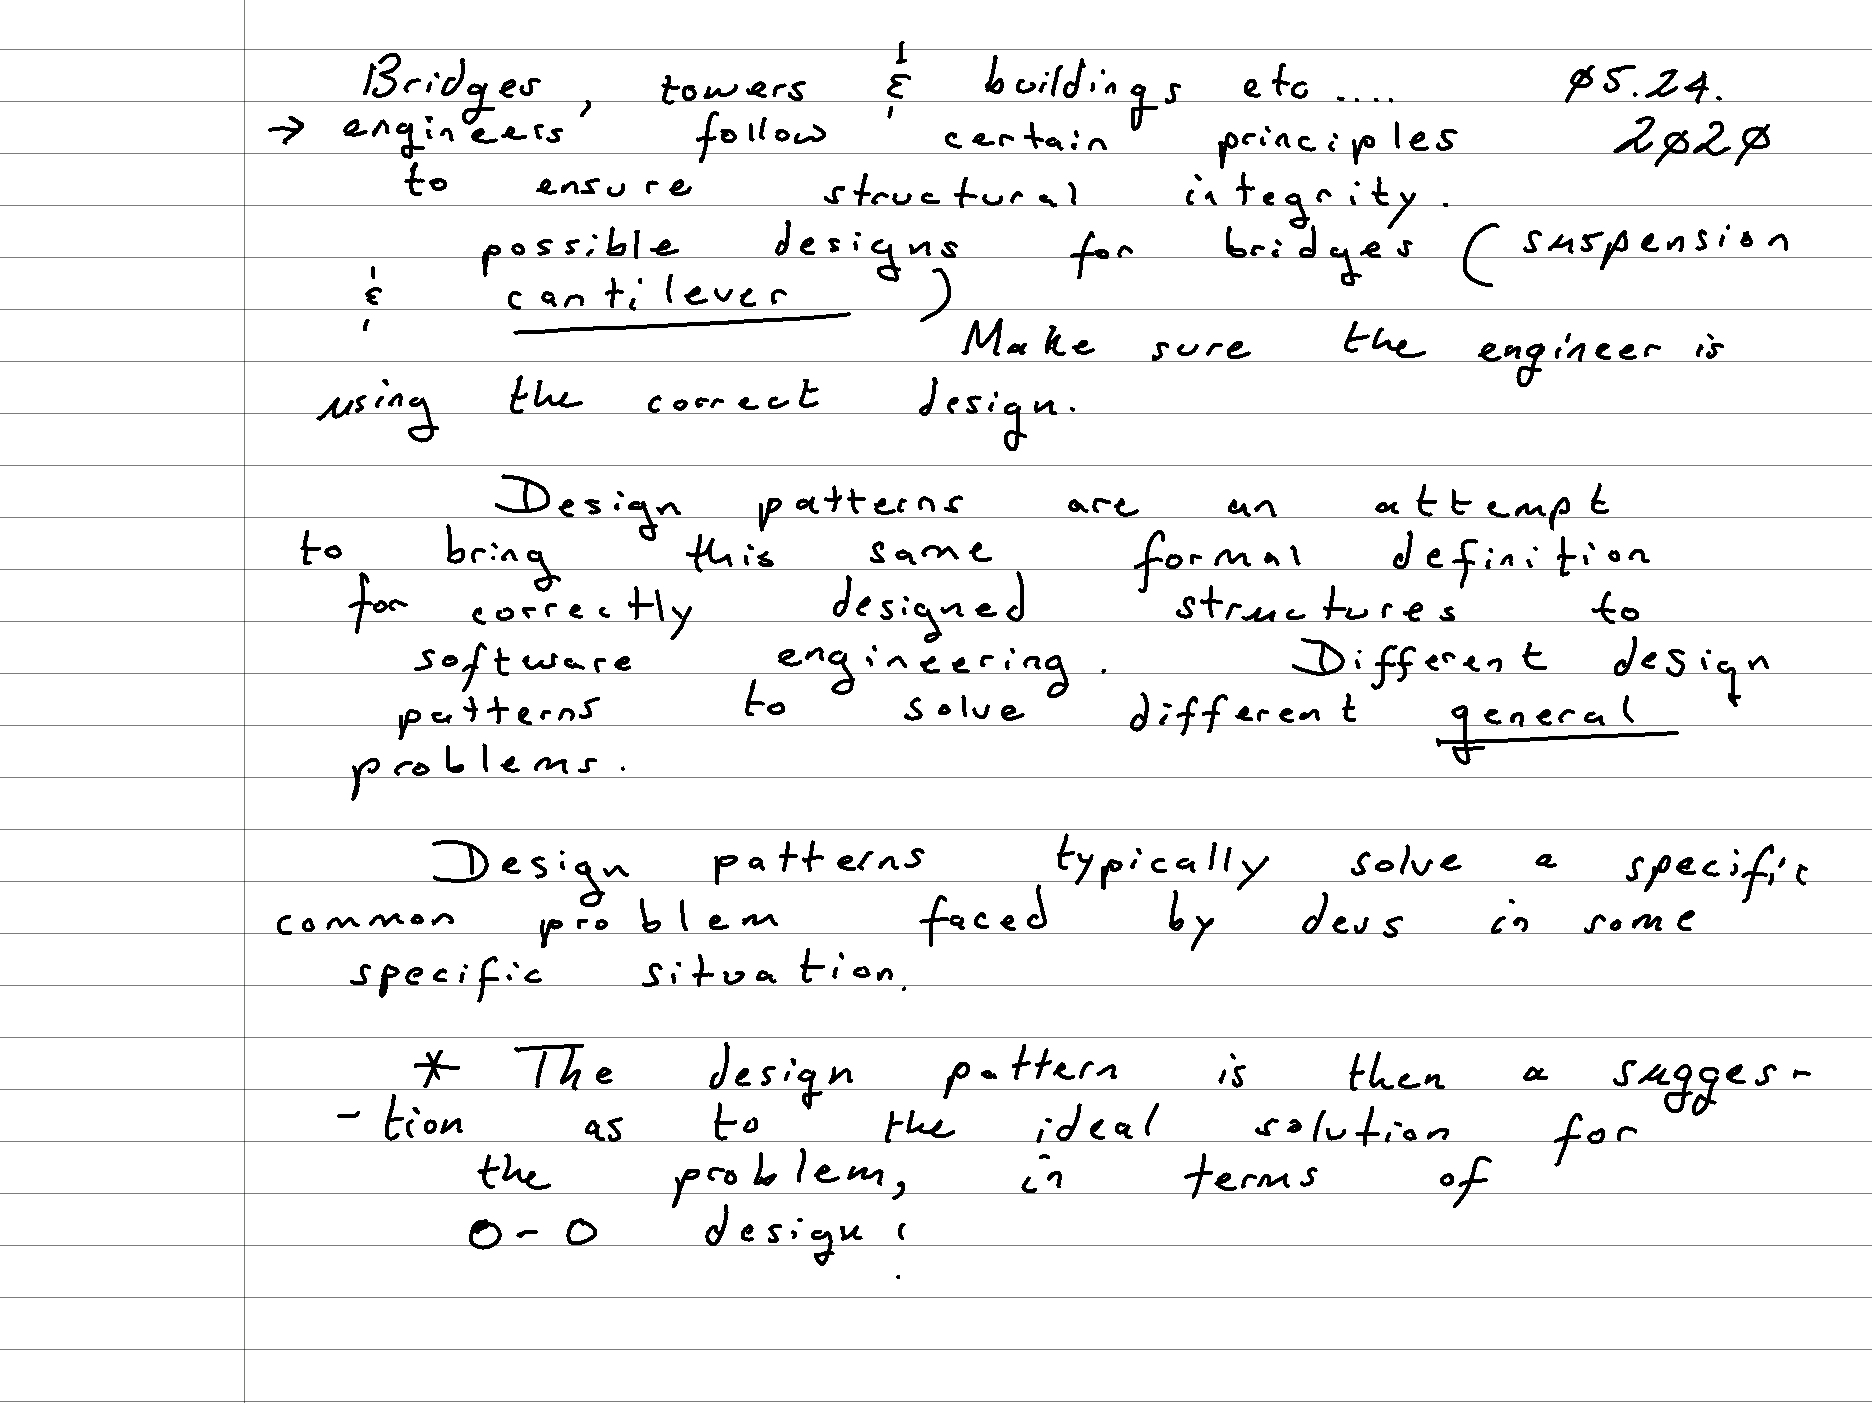 Bridges, towers & buildings etc.... 05.24.
→ engineers follow certain principles 2020
to ensure structural integrity.
possible designs for bridges (suspension
& cantilever)
Make sure the engineer is
using the correct design.
Design patterns are an attempt
to bring this same formal definition
for correctly designed structures to
software engineering. Different design
patterns to solve different general
problems.
Design patterns typically solve a specific
common problem faced by devs in some
specific situation.
* The design pattern is then a sugges-
-tion as to the ideal solution for
the problem, in terms of
O-O design!